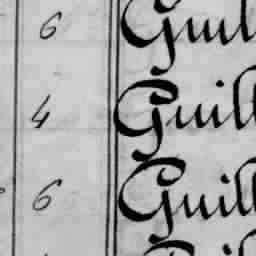 6 Guil
4 Guill
6 Guill